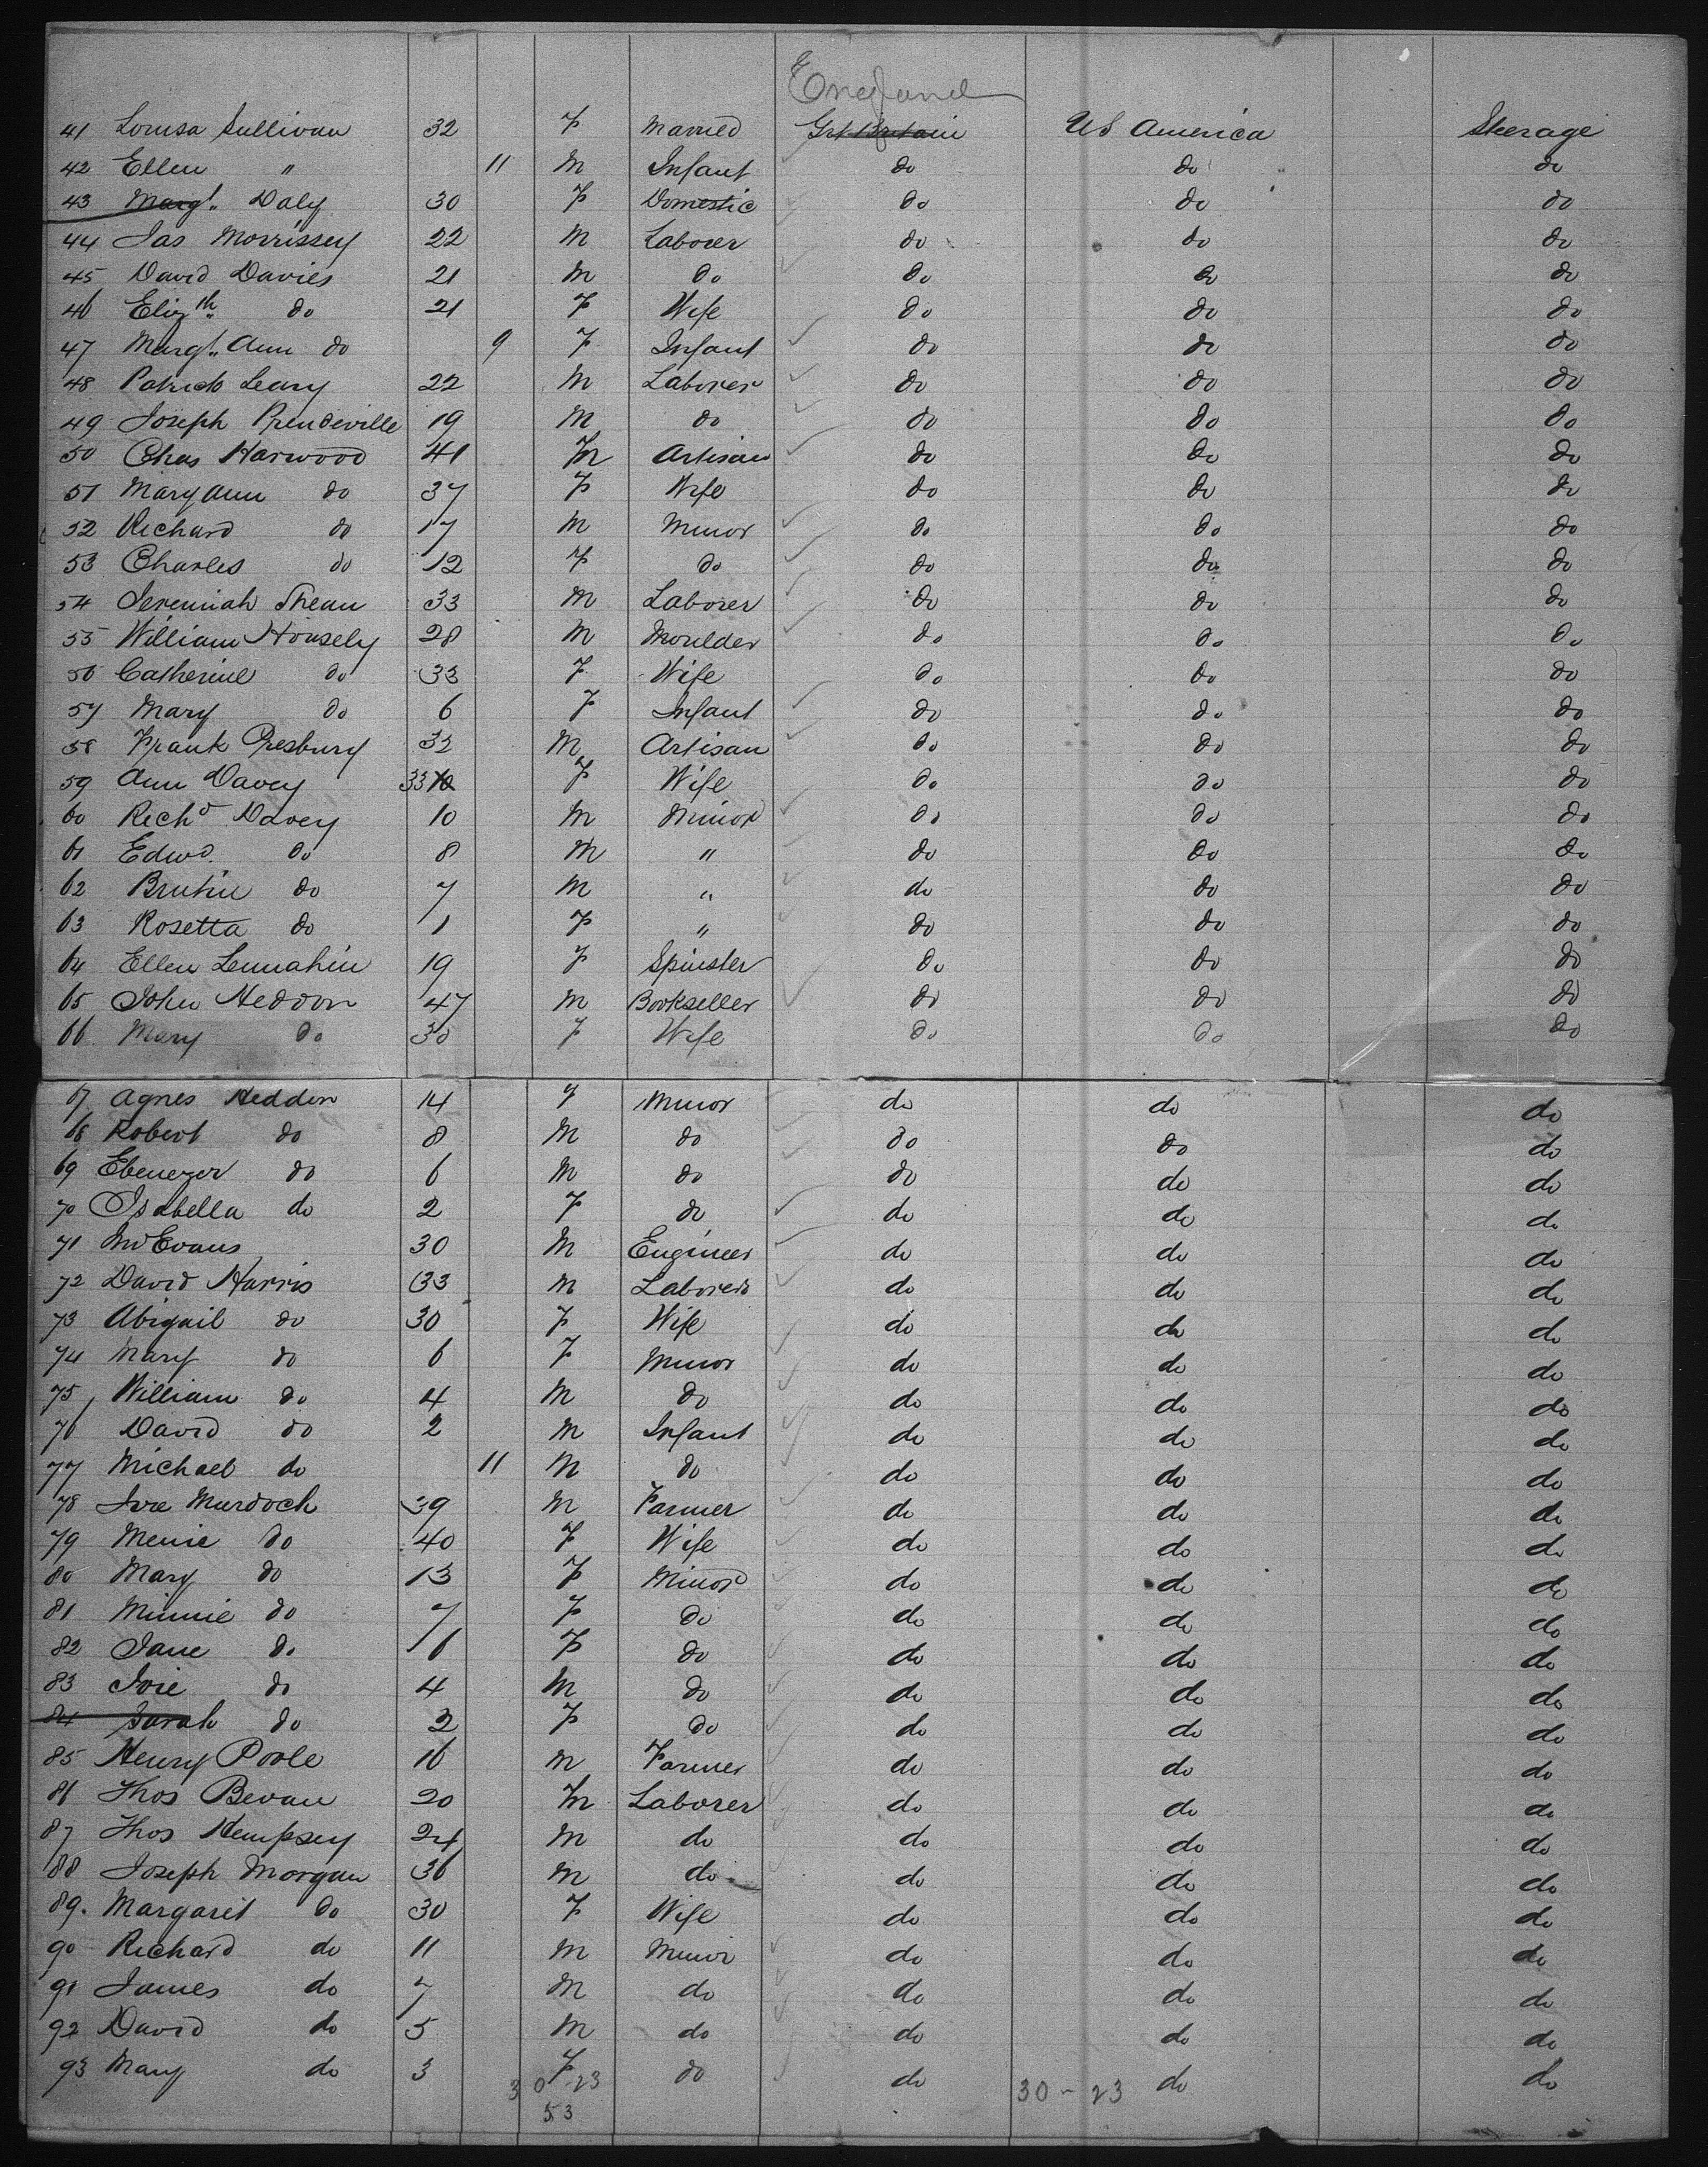 England
41 Louisa Sullivan 32 F Married Grt Britain US America Steerage
42 Ellen " 11 M Infant do do do
43 Margt. Daly 30 F Domestic do do do
44 Jas Morrissey 22 M Laborer do do do
45 David Davies 21 M do do do do
46 Elizth. do 21 F Wife do do do
47 Margt. Ann do 9 F Infant do do do
48 Patrick Leary 22 M Laborer do do do
49 Joseph Prendeville 19 M do do do do
50 Chas Harwood 41 M Artisan do do do
51 Mary Ann do 37 F Wife do do do
52 Richard do 17 M Minor do do do
53 Charles do 12 F do do do do
54 Jeremiah Shean 33 M Laborer do do do
55 William Housely 28 M Moulder do do do
56 Catherine do 33 F Wife do do do
57 Mary do 6 F Infant do do do
58 Frank Presbury 32 M Artisan do do do
59 Ann Davey 33 F Wife do do do
60 Richd Davey 10 M Minor do do do
61 Edwd. do 8 M " do do do
62 do 7 M " do do do
63 Rosetta do 1 F " do do do
64 Ellen Lennahin 19 F Spinster do do do
65 John Heddon 47 M Bookseller do do do
66 Mary do 30 F Wife do do do
67 Agnes Heddon 14 F Minor do do do
68 Robert do 8 M do do do do
69 Ebenezer do 6 M do do do do
70 Isabella do 2 F do do do do
71 Evans 30 M Engineer do do do
72 David Harris 33 M Laborer do do do
73 Abigail do 30 F Wife do do do
74 Mary do 6 F Minor do do do
75 William do 4 M do do do do
76 David do 2 M Infant do do do
77 Michael do 11 M do do do do
78 Ivie Murdoch 39 M Farmer do do do
79 Menie do 40 F Wife do do do
80 Mary do 13 F Minor do do do
81 Minnie do 7 F do do do do
82 Jane do 6 F do do do do
83 Ivie do 4 M do do do do
84 Sarah do 2 F do do do do
85 Henry Poole 16 M Farmer do do do
86 Thos Bevan 20 M Laborer do do do
87 Thos Hempsey 24 M do do do do
88 Joseph Morgan 36 M do do do do
89. Margaret do 30 F Wife do do do
90 Richard do 11 M Minor do do do
91 James do 7 M do do do do
92 David do 5 M do do do do
93 Mary do 3 F do do do do
30 - 23 30 - 23
53